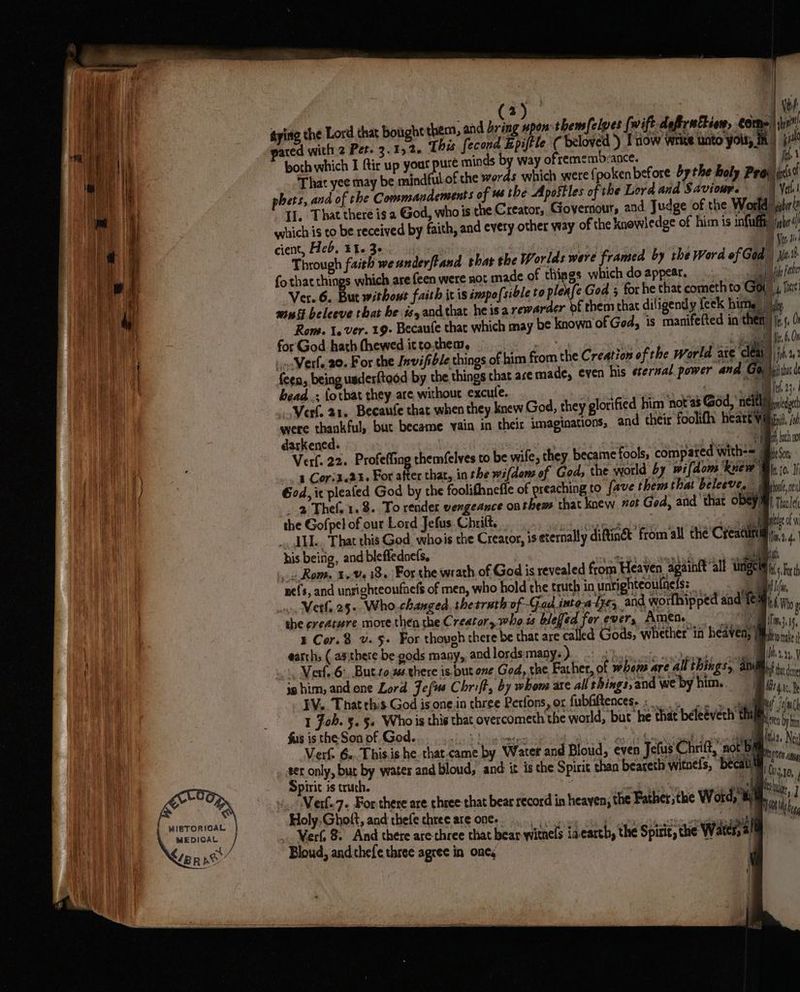 (2)
dying the Lord that bought them, and bring upon themselves swift destruction, com-
pared with 2 Pet. 3. 1, 2. This second Epistle (beloved) I now write unto you, in
both which I stir up your pure minds by way of remembrance.
That yee may be mindful of the words which were spoken before by the holy Pro-
phets, and of the Commandements of us the Apostles of the Lord and Saviour.
II. That there is a God, who is the Creator, Governour, and Judge of the World
which is to be received by faith, and every other way of the knowledge of him is insuffi-
cient, Heb. 11. 3.
Through faith we understand that the Worlds were framed by the Word of God
so that things which are seen were not made of things which do appear.
Ver. 6. But without faith it is impossible to please God; for he that cometh to God
must beleeve that he is, and that he is a rewarder of them that diligently seek him.
Rom. 1. ver. 19. Because that which may be known of God, is manifested in them
for God hath shewed it to them.
Vers. 20. For the Invisible things of him from the Creation of the World are clear
seen, being understood by the things that are made, even his eternal power and God
head; so that they are without excuse.
Vers. 21. Because that when they knew God, they glorified him not as God, neith
were thankful, but became vain in their imaginations, and their foolish heart
darkened.
Vers. 22. Professing themselves to be wise, they became fools, compared with--
1 Cor. 1. 21. For after that, in the wisdom of God, the world by wisdom knew
God, it pleased God by the foolishnesse of preaching to save them that beleeve.
2 Thes. 1. 8. To render vengeance on them that knew not God, and that obey
the Gospel of our Lord Jesus Christ.
III. That this God who is the Creator, is eternally distinct from all the Creatures
his being, and blessedness.
Rom. 1. v. 18. For the wrath of God is revealed from Heaven against all
ness, and unrighteousness of men, who hold the truth in unrighteousness:
Vers. 25. Who changed the truth of God into a lye, and worshipped and
the creature more then the Creator, who is blessed for ever, Amen.
1 Cor. 8 v. 5. For though there be that are called Gods, whether in heaven,
earth, (as there be gods many, and lords many.)
Vers. 6. But to us there is but one God, the Father, of whom are all things, and
in him, and one Lord Jesus Christ, by whom are all things, and we by him.
IV. That this God is one in three Persons, or subsistences.
1 Joh. 5. 5. Who is this that overcometh the world, but he that beleeveth
sus is the Son of God.
Vers. 6. This is he that came by Water and Bloud, even Jesus Christ, not
ter only, but by water and bloud, and it is the Spirit than beareth witness, because
Spirit is truth.
Vers. 7. For there are three that bear record in heaven, the Father, the Word,
Holy Ghost, and these three are one.
Vers. 8. And there are three that bear witness in earth, the Spirit, the Water,
Bloud, and these three agree in one,
WELLCOME
HISTORICAL
MEDICAL
LIBRARY